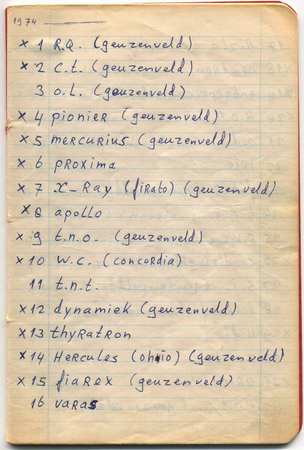 1974
x 1 R.Q. (geuzenveld)
x 2 C.t. (geuzenveld)
3 O.L. (geuzenveld)
x 4 pionier (geuzenveld)
x 5 mercurius (geuzenveld)
x 6 proxima
x 7 X-Ray (firato) (geuzenveld)
x 8 apollo
x 9 t.n.o. (geuzenveld)
x 10 W.C. (concordia)
11 t.n.t.
x 12 dynamiek (geuzenveld)
x 13 thyratron
x 14 Hercules (ohio) (geuzenveld)
x 15 fiarex (geuzenveld)
16 varas